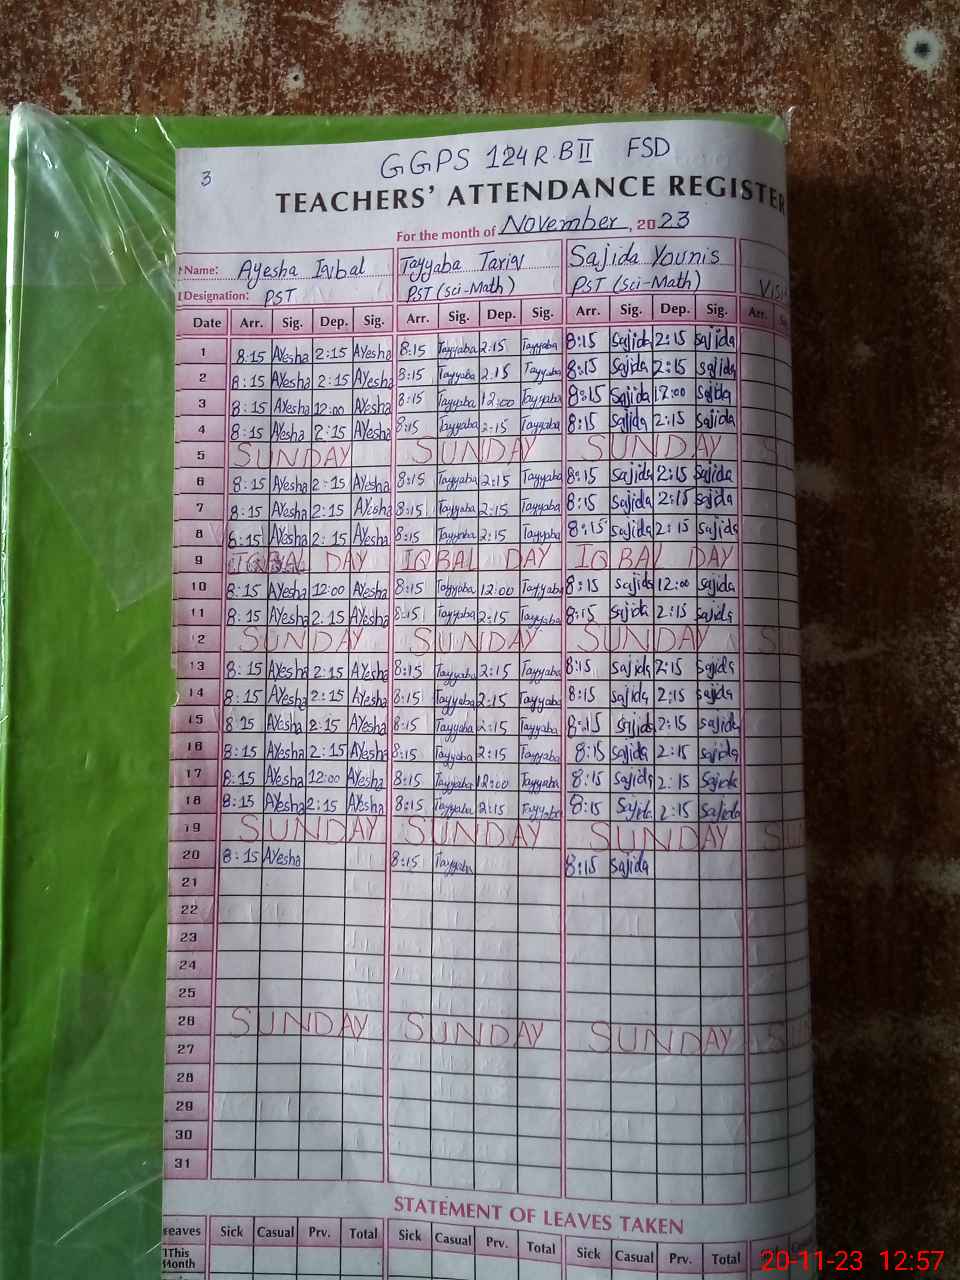 GGPS 124 R.B II FSD
3
TEACHERS' ATTENDANCE REGISTER
For the month of November, 2023
Name: Ayesha Iqbal Tayyaba Tariq Sajida Younis
Designation: PST PST (Sci-Math) PST (Sci-Math)
Date Arr. Sig. Dep. Sig. Arr. Sig. Dep. Sig. Arr. Sig. Dep. Sig. Arr.
1 8:15 Ayesha 2:15 Ayesha 8:15 Tayyaba 2:15 Tayyaba 8:15 Sajida 2:15 Sajida
2 8:15 Ayesha 2:15 Ayesha 8:15 Tayyaba 2:15 Tayyaba 8:15 Sajida 2:15 Sajida
3 8:15 Ayesha 12:00 Ayesha 8:15 Tayyaba 12:00 Tayyaba 8:15 Sajida 12:00 Sajida
4 8:15 Ayesha 2:15 Ayesha 8:15 Tayyaba 2:15 Tayyaba 8:15 Sajida 2:15 Sajida
5 SUNDAY SUNDAY SUNDAY S
6 8:15 Ayesha 2:15 Ayesha 8:15 Tayyaba 2:15 Tayyaba 8:15 Sajida 2:15 Sajida
7 8:15 Ayesha 2:15 Ayesha 8:15 Tayyaba 2:15 Tayyaba 8:15 Sajida 2:15 Sajida
8 8:15 Ayesha 2:15 Ayesha 8:15 Tayyaba 2:15 Tayyaba 8:15 Sajida 2:15 Sajida
9 IQBAL DAY IQBAL DAY IQBAL DAY
10 8:15 Ayesha 12:00 Ayesha 8:15 Tayyaba 12:00 Tayyaba 8:15 Sajida 12:00 Sajida
11 8:15 Ayesha 2:15 Ayesha 8:15 Tayyaba 2:15 Tayyaba 8:15 Sajida 2:15 Sajida
12 SUNDAY SUNDAY SUNDAY S
13 8:15 Ayesha 2:15 Ayesha 8:15 Tayyaba 2:15 Tayyaba 8:15 Sajida 2:15 Sajida
14 8:15 Ayesha 2:15 Ayesha 8:15 Tayyaba 2:15 Tayyaba 8:15 Sajida 2:15 Sajida
15 8:15 Ayesha 2:15 Ayesha 8:15 Tayyaba 2:15 Tayyaba 8:15 Sajida 2:15 Sajida
16 8:15 Ayesha 2:15 Ayesha 8:15 Tayyaba 2:15 Tayyaba 8:15 Sajida 2:15 Sajida
17 8:15 Ayesha 12:00 Ayesha 8:15 Tayyaba 12:00 Tayyaba 8:15 Sajida 2:15 Sajida
18 8:15 Ayesha 2:15 Ayesha 8:15 Tayyaba 2:15 Tayyaba 8:15 Sajida 2:15 Sajida
19 SUNDAY SUNDAY SUNDAY SU
20 8:15 Ayesha 8:15 Tayyaba 8:15 Sajida
21
22
23
24
25
26 SUNDAY SUNDAY SUNDAY S
27
28
29
30
31
STATEMENT OF LEAVES TAKEN
eaves Sick Casual Prv. Total Sick Casual Prv. Total Sick Casual Prv. Total
This Month
20-11-23 12:57